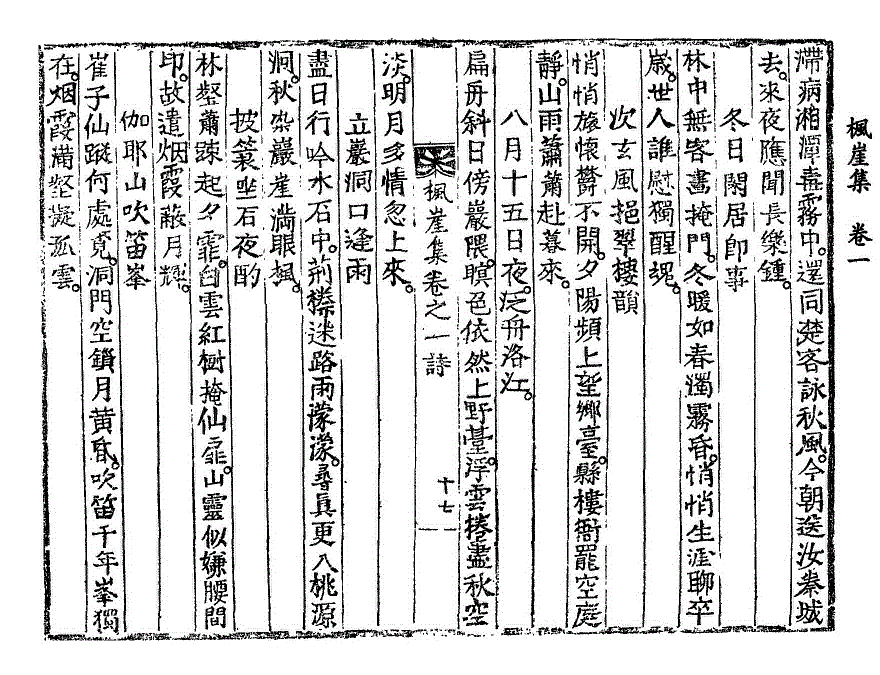 楓崖集　卷一
滯病湘潭毒霧中。還同楚客詠秋風。今朝送汝秦城
去。來夜應聞長樂鍾。
冬日閑居卽事
林中無客晝掩門。冬暖如春濁霧昏。悄悄生涯聊卒
歲。世人誰慰獨醒魂。
次玄風挹翠樓韻
悄悄旅懷鬱不開。夕陽頻上望鄉臺。縣樓衙罷空庭
靜。山雨蕭蕭赴暮來。
八月十五日夜。泛舟洛江。
扁舟斜日傍巖隈。暝色依然上野臺。浮雲捲盡秋空
楓崖集卷之一　詩　十七
淡。明月多情忽上來。
立巖洞口逢雨
盡日行吟水石中。荊榛迷路雨濛濛。尋眞更入桃源
洞。秋染巖崖滿眼楓。
披簑坐石夜酌
林壑蕭踈起夕霏。白雲紅樹掩仙扉。山靈似嫌腰間
印。故遣烟霞蔽月輝。
伽耶山吹笛峯
崔子仙蹤何處覓。洞門空鎖月黃昏。吹笛千年峯獨
在。烟霞滿壑凝孤雲。